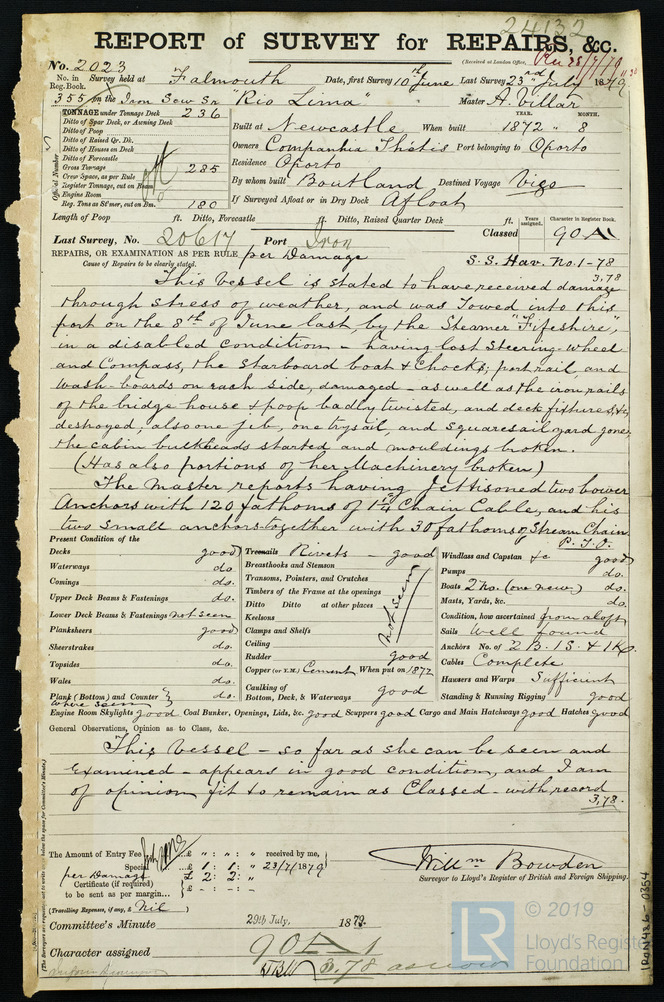 24132
REPORT of SURVEY for REPAIRS, &c.
(Received at London Office, Rec 28/7/79
No. 2023
No. in Reg. Book.
Survey held at Falmouth Date, first Survey 10th June Last Survey 23rd July 1879
355 on the Iron Scw Sr "Rio Lima" Master A. Villar
TONNAGE under Tonnage Deck 236
Ditto of Spar Deck, or Awning Deck
Ditto of Poop
Ditto of Raised Qr. Dk.
Ditto of Houses on Deck
Ditto of Forecastle
Gross Tonnage 285
Crew Space, as per Rule
Register Tonnage, cut on Beam
Engine Room
Reg. Tons as St'mer, cut on Bm. 180
Official Number
YEAR. MONTH.
Built at Newcastle When built 1872 - 8
Owners Companhia Thetis Port belonging to Oporto
Residence Oporto
By whom built Boutland Destined Voyage Vigo
If Surveyed Afloat or in Dry Dock Afloat
Length of Poop ft. Ditto, Forecastle ft. Ditto, Raised Quarter Deck ft.
Years assigned. Character in Register Book.
Last Survey, No. 20617 Port Iron Classed 90 A1
REPAIRS, OR EXAMINATION AS PER RULE per Damage S.S. Hav. No. 1-78
Cause of Repairs to be clearly stated. 3,78
This Vessel is stated to have received damage
through stress of weather, and was Towed into this
port on the 8th of June last by the Steamer "Fifeshire",
in a disabled condition - having lost Steering wheel
and Compass, the starboard boat & Chocks; port rail and
wash-boards on each side, damaged - as well as the iron rails
of the bridge house & poop badly twisted, and deck fixtures, &c,
destroyed, also one jib, one trysail and Squaresail yard gone,
the cabin bulkheads started and mouldings broken.
(Has also portions of her Machinery broken)
The Master reports having Jettisoned two bower
Anchors with 120 fathoms of 1 1/4 in Chain Cable, and his
two small anchors together with 30 fathoms of Stream Chain.
P.T.O.
Present Condition of the
Decks good
Waterways do.
Comings do.
Upper Deck Beams & Fastenings do.
Lower Deck Beams & Fastenings not seen
Planksheers good
Sheerstrakes do.
Topsides do.
Wales do.
Plank (Bottom) and Counter where seen do.
Treenails Rivets - good
Breasthooks and Stemson
Transoms, Pointers, and Crutches
Timbers of the Frame at the openings
Ditto Ditto at other places
Keelsons
Clamps and Shelfs
Ceiling
not seen
Rudder good
Copper (or Y.M.) Cement When put on 1872
Caulking of Bottom, Deck, & Waterways good
Windlass and Capstan &c good
Pumps do.
Boats 2 No. (one new) do.
Masts, Yards, &c. do.
Condition, how ascertained from aloft
Sails Well found
Anchors No. of 2 B. 1 S. & 1 K.
Cables Complete
Hawsers and Warps Sufficient
Standing & Running Rigging good
Engine Room Skylights good Coal Bunker, Openings, Lids, &c. good Scuppers good Cargo and Main Hatchways good Hatches good
General Observations, Opinion as to Class, &c.
This Vessel - so far as she can be seen and
Examined - appears in good condition, and I am
of opinion fit to remain as Classed - with record
3,78.
The Amount of Entry Fee £ " : " : " received by me,
Special £ 1 : 1 : " 23/7/1879
per Damage £ 2 : 2 : "
Certificate (if required) £ - : - : -
to be sent as per margin...
(Travelling Expenses, if any, £ Nil )
Willm Bowden
Surveyor to Lloyd's Register of British and Foreign Shipping.
Committee's Minute 29th July, 1879.
Character assigned 90 A1
3.78
IRON426-0354
LR
© 2019
Lloyd's Register
Foundation